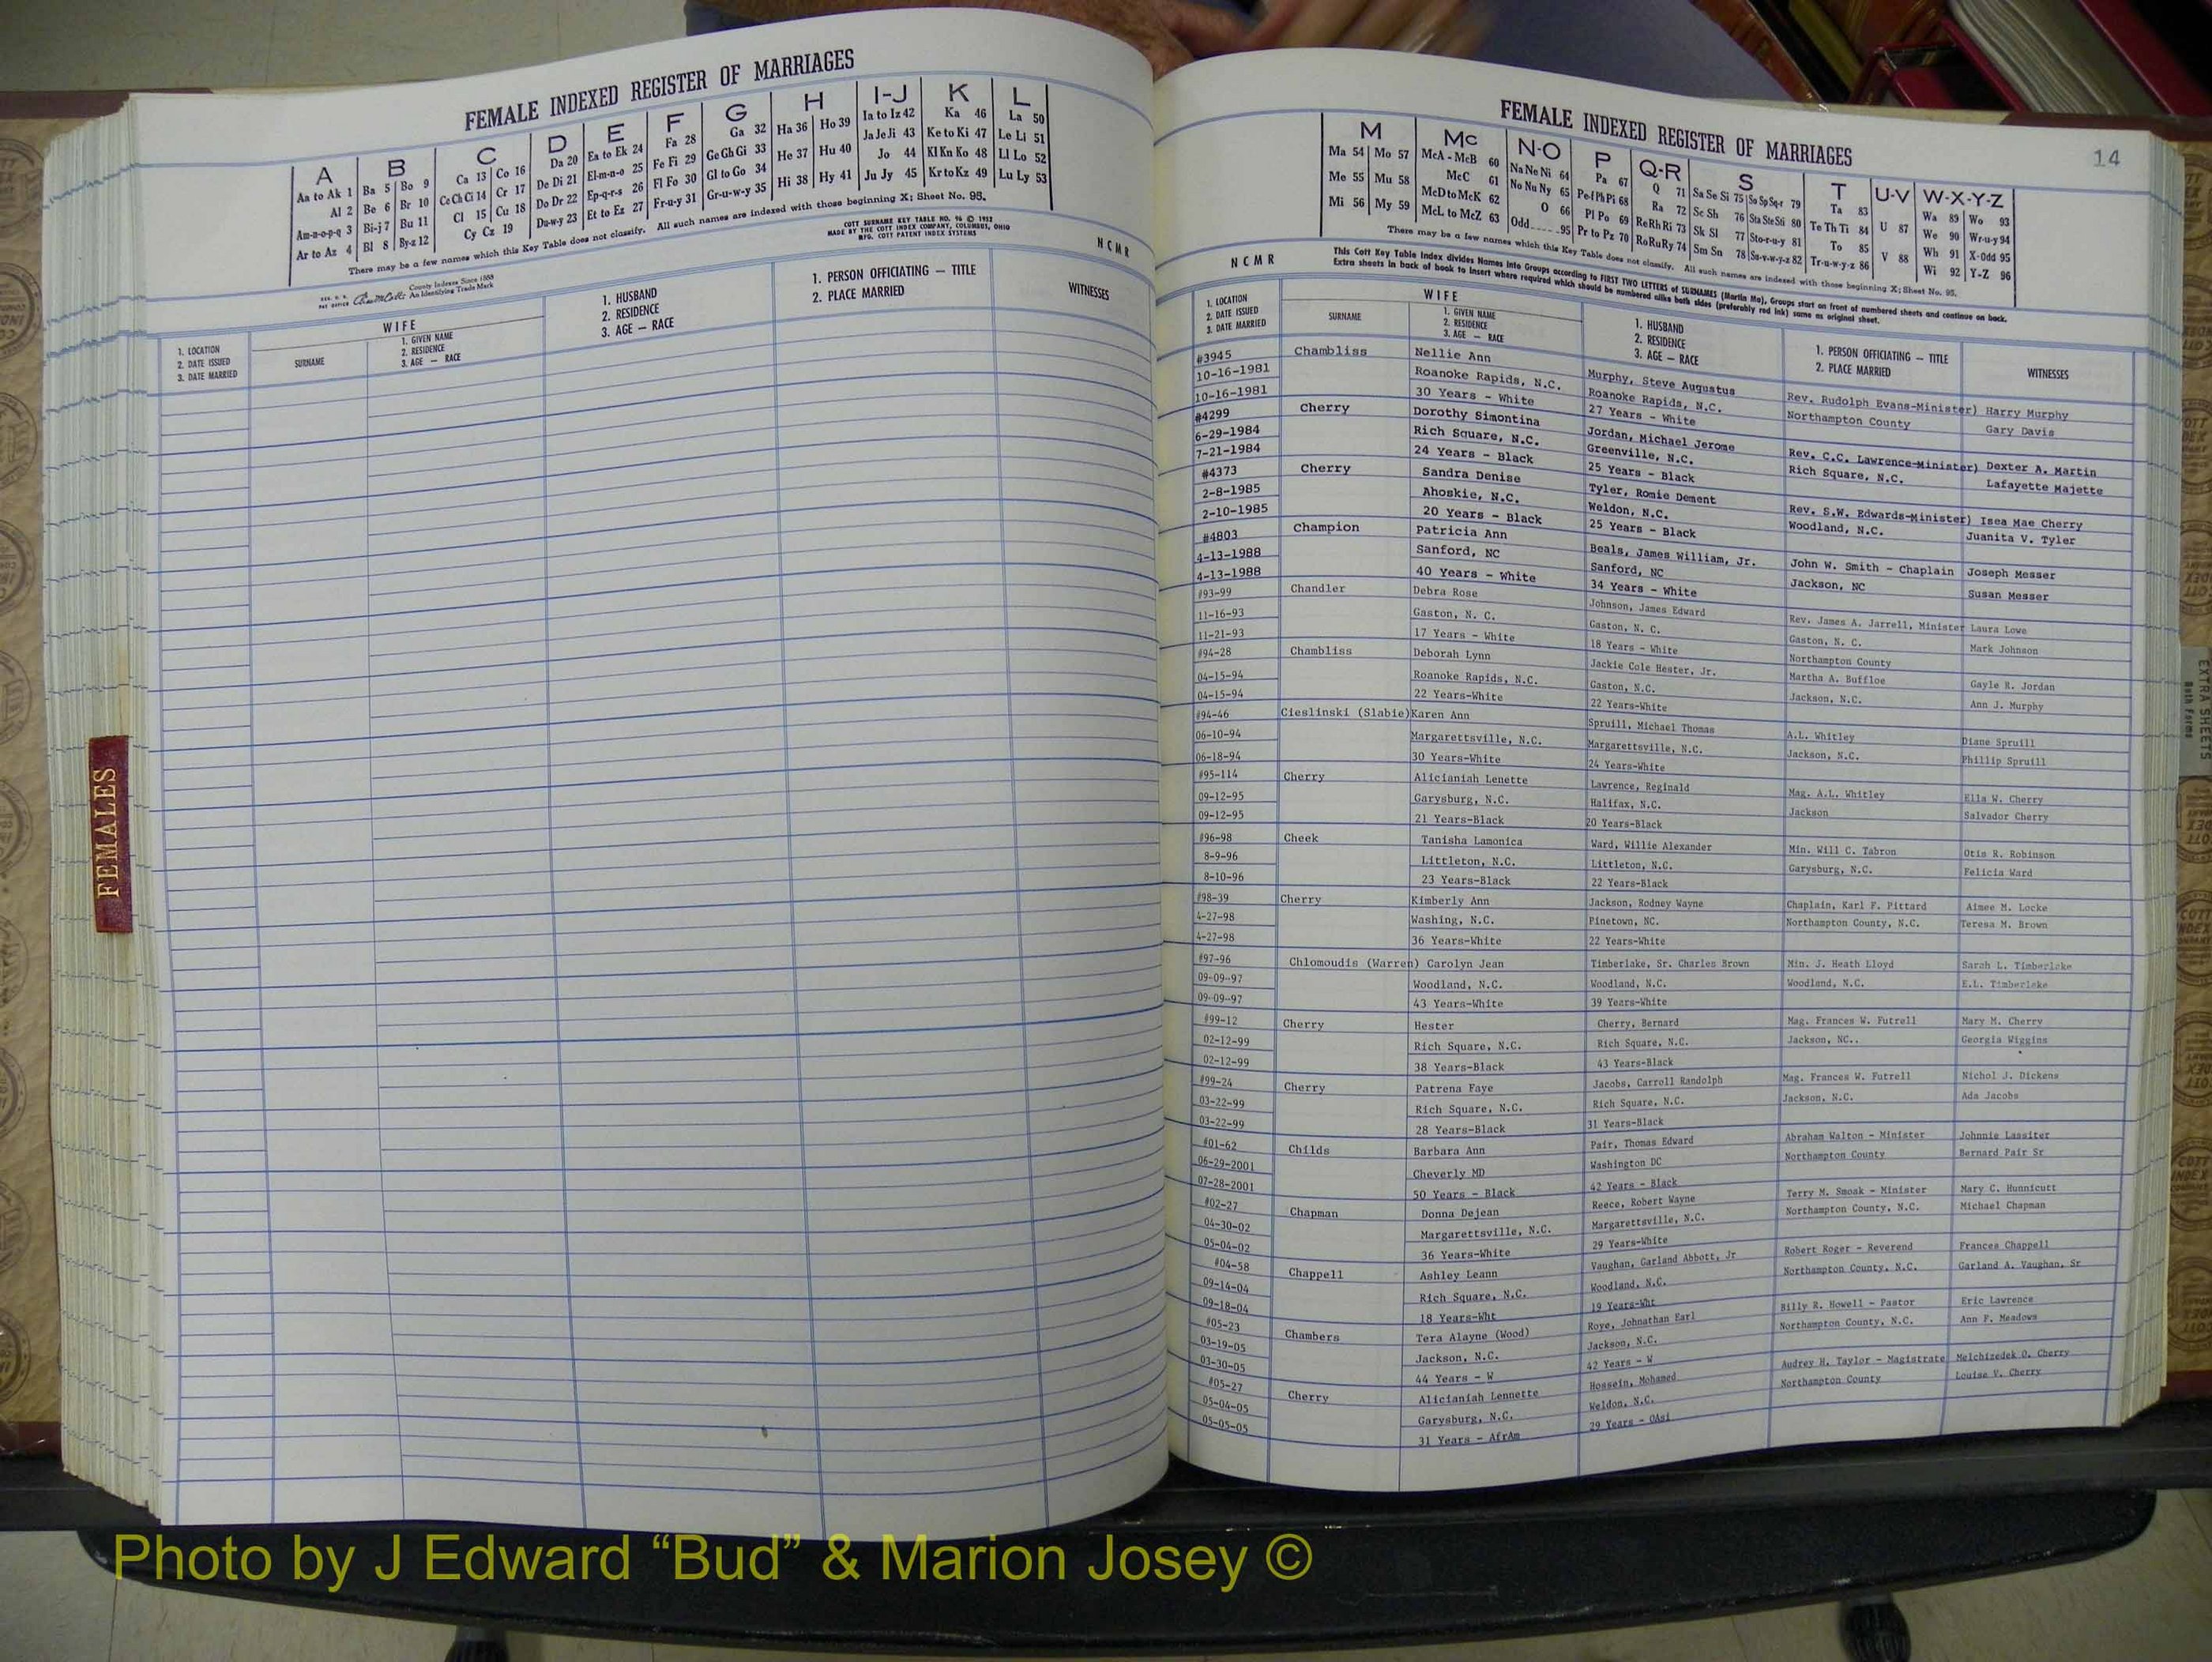 FEMALE INDEXED REGISTER OF MARRIAGES
A B C D E F G H I-J K L
Aa to Ak 1 Ba 5 Bo 9 Ca 13 Co 16 Da 20 Ea to Ek 24 Fa 28 Ga 32 Ha 36 Ho 39 Ia to Iz 42 Ka 46 La 50
Al 2 Be 6 Br 10 Ce Ch Ci 14 Cr 17 De Di 21 El-m-n-o 25 Fe Fi 29 Ge Gh Gi 33 He 37 Hu 40 Ja Je Ji 43 Ke to Ki 47 Le Li 51
Am-n-o-p-q 3 Bi-j 7 Bu 11 Cl 15 Cu 18 Do Dr 22 Ep-q-r-s 26 Fl Fo 30 Gl to Go 34 Hi 38 Hy 41 Jo 44 Kl Kn Ko 48 Ll Lo 52
Ar to Az 4 Bl 8 By-z 12 Cy Cz 19 Du-w-y 23 Et to Ez 27 Fr-u-y 31 Gr-u-w-y 35 Ju Jy 45 Kr to Kz 49 Lu Ly 53
There may be a few names which this Key Table does not classify. All such names are indexed with those beginning X; Sheet No. 95.
COTT SURNAME KEY TABLE NO. 96 © 1952
MADE BY THE COTT INDEX COMPANY, COLUMBUS, OHIO
MFG. COTT PATENT INDEX SYSTEMS
County Indexes Since 1888
An Identifying Trade Mark
NCMR
1. LOCATION
2. DATE ISSUED
3. DATE MARRIED
WIFE
SURNAME
1. GIVEN NAME
2. RESIDENCE
3. AGE — RACE
1. HUSBAND
2. RESIDENCE
3. AGE — RACE
1. PERSON OFFICIATING — TITLE
2. PLACE MARRIED
WITNESSES
FEMALES
FEMALE INDEXED REGISTER OF MARRIAGES
14
M Mc N-O P Q-R S T U-V W-X-Y-Z
Ma 54 Mo 57 McA - McB 60 Na Ne Ni 64 Pa 67 Q 71 Sa Se Si 75 So Sp Sq-r 79 Ta 83 U 87 Wa 89 Wo 93
Me 55 Mu 58 McC 61 No Nu Ny 65 Pe-f Ph Pi 68 Ra 72 Sc Sh 76 Sta Ste Sti 80 Te Th Ti 84 V 88 We 90 Wr-u-y 94
Mi 56 My 59 McD to McK 62 O 66 Pl Po 69 Re Rh Ri 73 Sk Sl 77 Sto-r-u-y 81 To 85 Wh 91 X-Odd 95
McL to McZ 63 Odd 95 Pr to Pz 70 Ro Ru Ry 74 Sm Sn 78 Su-v-w-y-z 82 Tr-u-w-y-z 86 Wi 92 Y-Z 96
There may be a few names which this Key Table does not classify. All such names are indexed with those beginning X; Sheet No. 95.
This Cott Key Table Index divides Names into Groups according to FIRST TWO LETTERS of SURNAMES (Martin Ma), Groups start on front of numbered sheets and continue on back.
Extra sheets in back of book to insert where required which should be numbered alike both sides (preferably red ink) same as original sheet.
NCMR
1. LOCATION
2. DATE ISSUED
3. DATE MARRIED
WIFE
SURNAME
1. GIVEN NAME
2. RESIDENCE
3. AGE — RACE
1. HUSBAND
2. RESIDENCE
3. AGE — RACE
1. PERSON OFFICIATING — TITLE
2. PLACE MARRIED
WITNESSES
#3945 Chambliss Nellie Ann Murphy, Steve Augustus Rev. Rudolph Evans-Minister) Harry Murphy
10-16-1981 Roanoke Rapids, N.C. Roanoke Rapids, N.C. Northampton County Gary Davis
10-16-1981 30 Years - White 27 Years - White
#4299 Cherry Dorothy Simontina Jordan, Michael Jerome Rev. C.C. Lawrence-Minister) Dexter A. Martin
6-29-1984 Rich Square, N.C. Greenville, N.C. Rich Square, N.C. Lafayette Majette
7-21-1984 24 Years - Black 25 Years - Black
#4373 Cherry Sandra Denise Tyler, Romie Dement Rev. S.W. Edwards-Minister) Isea Mae Cherry
2-8-1985 Ahoskie, N.C. Weldon, N.C. Woodland, N.C. Juanita V. Tyler
2-10-1985 20 Years - Black 25 Years - Black
#4803 Champion Patricia Ann Beals, James William, Jr. John W. Smith - Chaplain Joseph Messer
4-13-1988 Sanford, NC Sanford, NC Jackson, NC Susan Messer
4-13-1988 40 Years - White 34 Years - White
#93-99 Chandler Debra Rose Johnson, James Edward Rev. James A. Jarrell, Minister Laura Lowe
11-16-93 Gaston, N. C. Gaston, N. C. Gaston, N. C. Mark Johnson
11-21-93 17 Years - White 18 Years - White Northampton County
#94-28 Chambliss Deborah Lynn Jackie Cole Hester, Jr. Martha A. Buffloe Gayle R. Jordan
04-15-94 Roanoke Rapids, N.C. Gaston, N.C. Jackson, N.C. Ann J. Murphy
04-15-94 22 Years-White 22 Years-White
#94-46 Cieslinski (Slabie) Karen Ann Spruill, Michael Thomas A.L. Whitley Diane Spruill
06-10-94 Margarettsville, N.C. Margarettsville, N.C. Jackson, N.C. Phillip Spruill
06-18-94 30 Years-White 24 Years-White
#95-114 Cherry Alicianiah Lenette Lawrence, Reginald Mag. A.L. Whitley Ella W. Cherry
09-12-95 Garysburg, N.C. Halifax, N.C. Jackson Salvador Cherry
09-12-95 21 Years-Black 20 Years-Black
#96-98 Cheek Tanisha Lamonica Ward, Willie Alexander Min. Will C. Tabron Otis R. Robinson
8-9-96 Littleton, N.C. Littleton, N.C. Garysburg, N.C. Felicia Ward
8-10-96 23 Years-Black 22 Years-Black
#98-39 Cherry Kimberly Ann Jackson, Rodney Wayne Chaplain, Karl F. Pittard Aimee M. Locke
4-27-98 Washing, N.C. Pinetown, NC. Northampton County, N.C. Teresa M. Brown
4-27-98 36 Years-White 22 Years-White
#97-96 Chlomoudis (Warren) Carolyn Jean Timberlake, Sr. Charles Brown Min. J. Heath Lloyd Sarah L. Timberlake
09-09-97 Woodland, N.C. Woodland, N.C. Woodland, N.C. E.L. Timberlake
09-09-97 43 Years-White 39 Years-White
#99-12 Cherry Hester Cherry, Bernard Mag. Frances W. Futrell Mary M. Cherry
02-12-99 Rich Square, N.C. Rich Square, N.C. Jackson, NC.. Georgia Wiggins
02-12-99 38 Years-Black 43 Years-Black
#99-24 Cherry Patrena Faye Jacobs, Carroll Randolph Mag. Frances W. Futrell Nichol J. Dickens
03-22-99 Rich Square, N.C. Rich Square, N.C. Jackson, N.C. Ada Jacobs
03-22-99 28 Years-Black 31 Years-Black
#01-62 Childs Barbara Ann Pair, Thomas Edward Abraham Walton - Minister Johnnie Lassiter
06-29-2001 Cheverly MD Washington DC Northampton County Bernard Pair Sr
07-28-2001 50 Years - Black 42 Years - Black
#02-27 Chapman Donna Dejean Reece, Robert Wayne Terry M. Smoak - Minister Mary C. Hunnicutt
04-30-02 Margarettsville, N.C. Margarettsville, N.C. Northampton County, N.C. Michael Chapman
05-04-02 36 Years-White 29 Years-White
#04-58 Chappell Ashley Leann Vaughan, Garland Abbott, Jr Robert Roger - Reverend Frances Chappell
09-14-04 Rich Square, N.C. Woodland, N.C. Northampton County, N.C. Garland A. Vaughan, Sr
09-18-04 18 Years-Wht 19 Years-Wht
#05-23 Chambers Tera Alayne (Wood) Roye, Johnathan Earl Billy R. Howell - Pastor Eric Lawrence
03-19-05 Jackson, N.C. Jackson, N.C. Northampton County, N.C. Ann F. Meadows
03-30-05 44 Years - W 42 Years - W
#05-27 Cherry Alicianiah Lennette Hossein, Mohamed Audrey H. Taylor - Magistrate Melchizedek O. Cherry
05-04-05 Garysburg, N.C. Weldon, N.C. Northampton County Louise V. Cherry
05-05-05 31 Years - AfrAm 29 Years - OAsi
Photo by J Edward “Bud” & Marion Josey ©